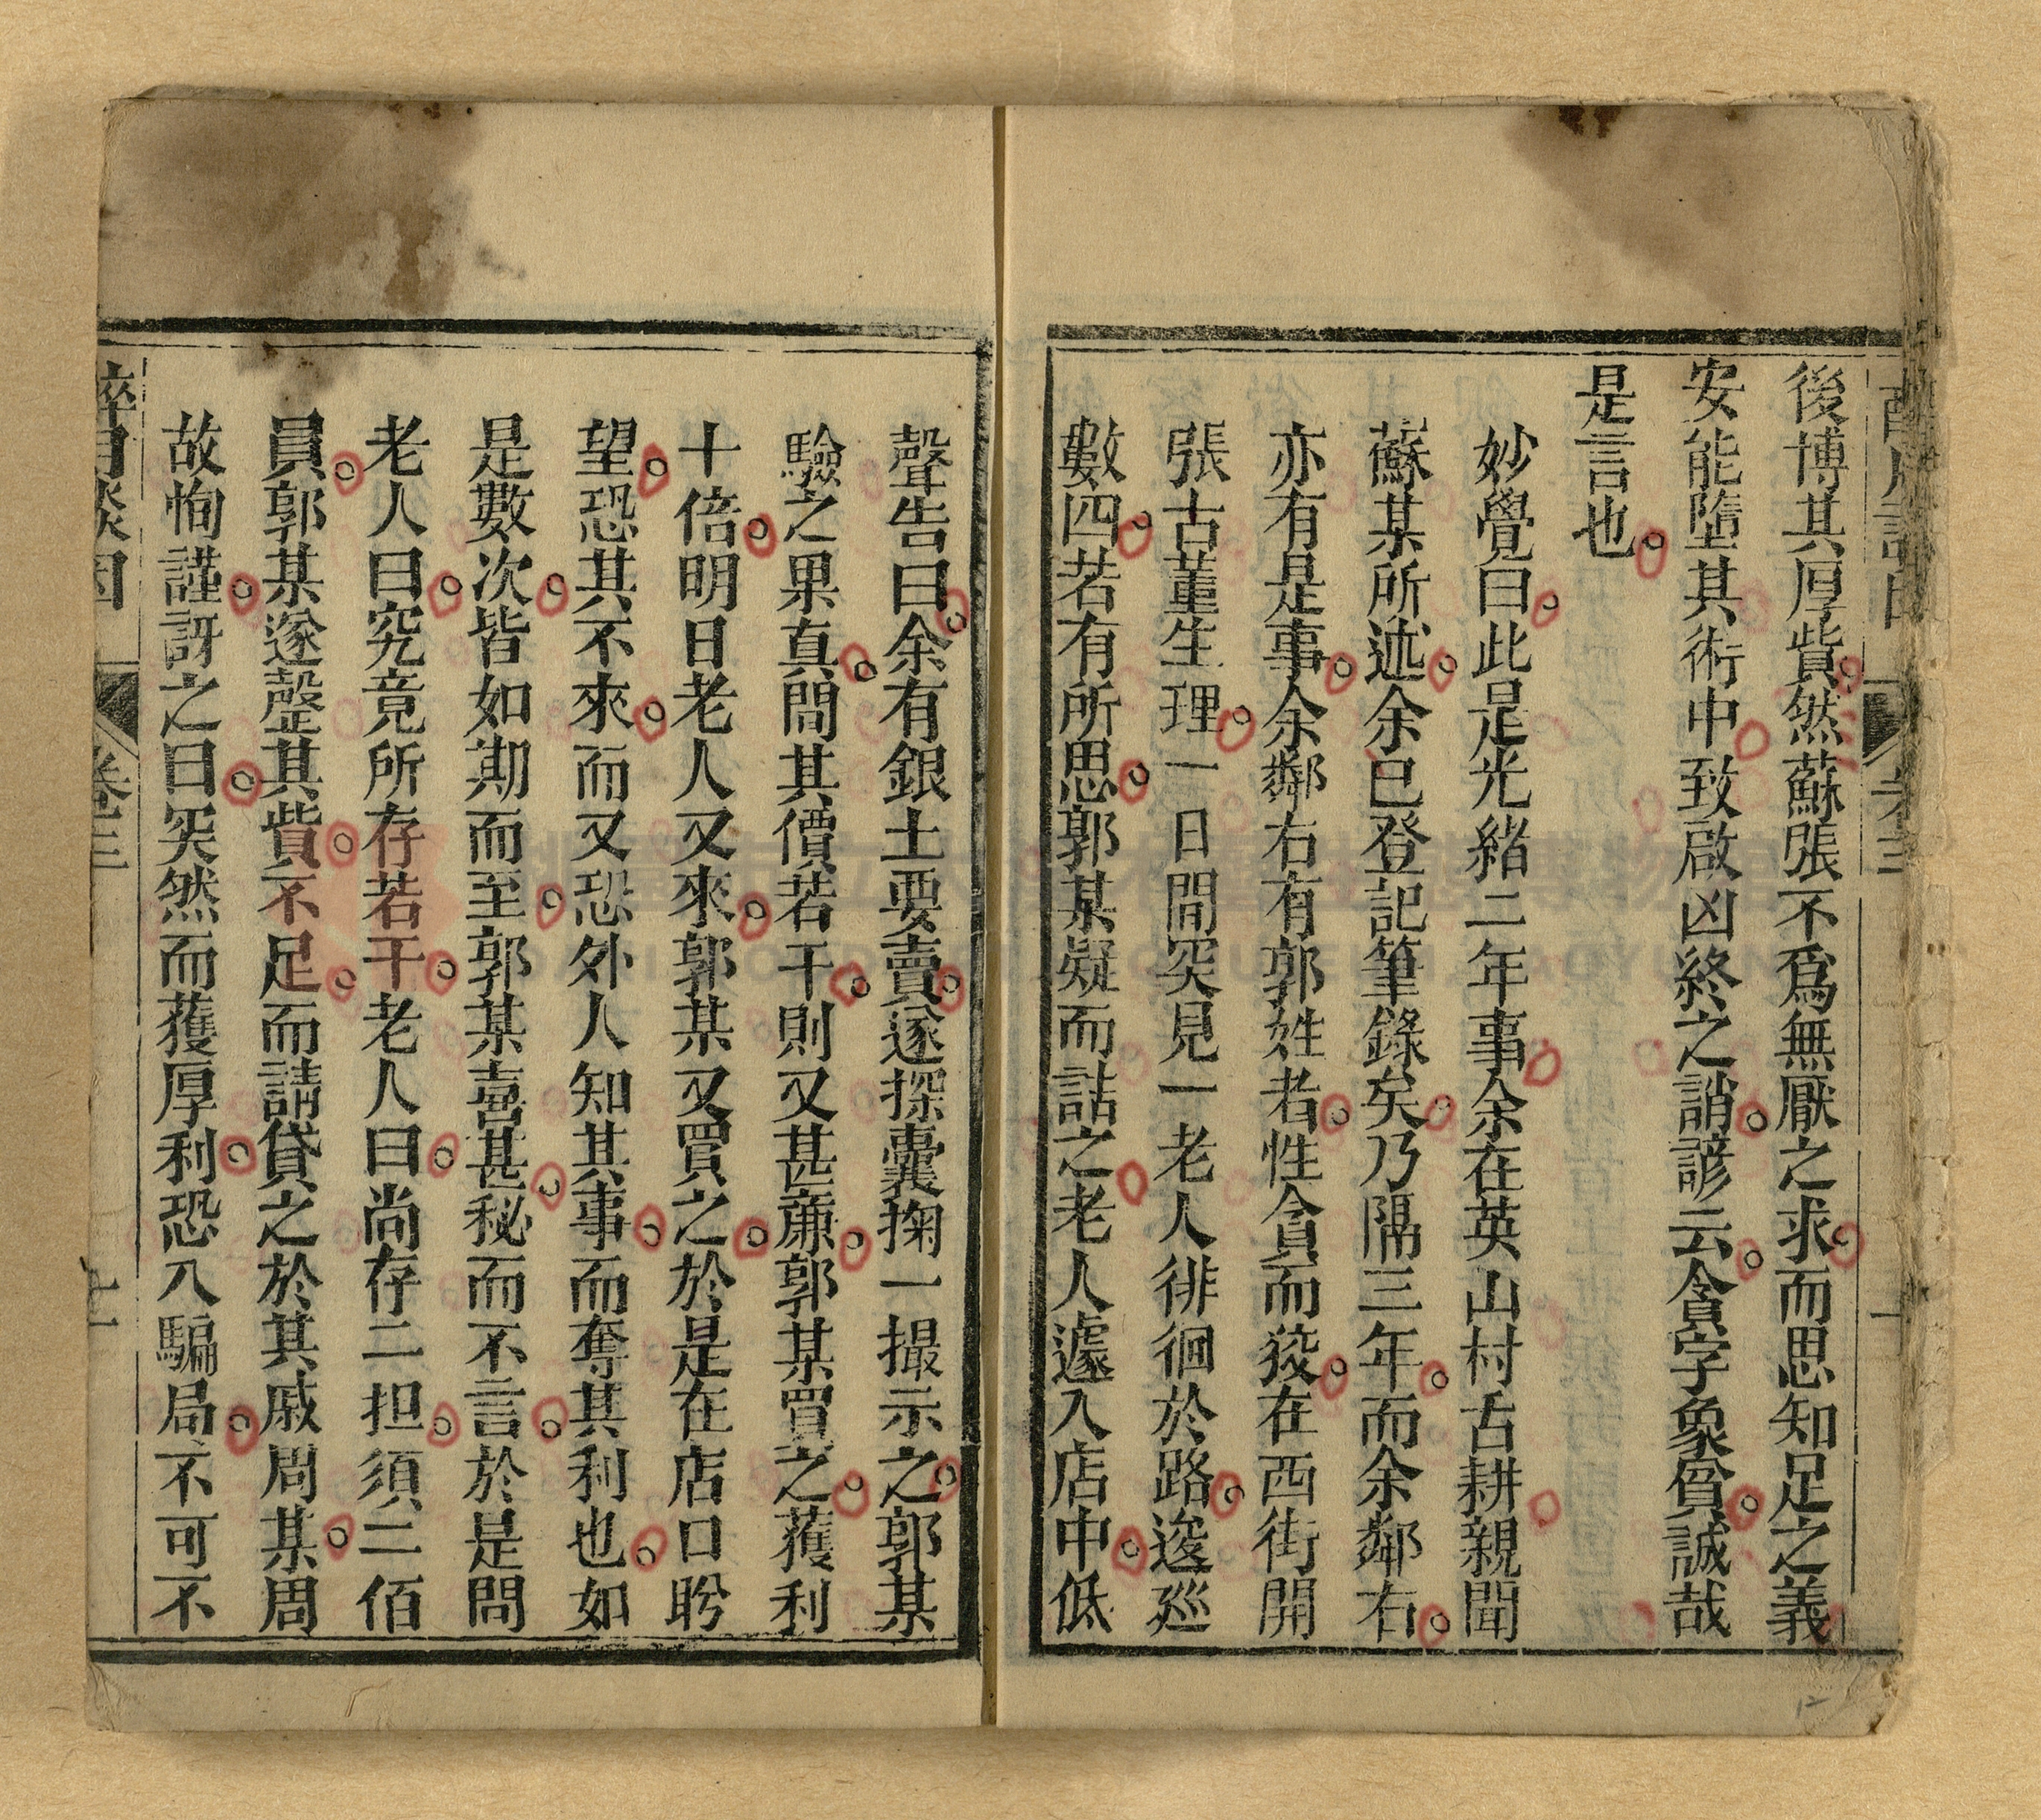 後博其厚貲然蘇張不爲無厭之求而思知足之義
安能墮其術中致啟凶終之誚諺云貪字象貧誠哉
是言也
妙覺曰此是光緒二年事余在英山村舌耕親聞
蘇某所述余已登記筆錄矣乃隔三年而余鄰右
亦有是事余鄰右有郭姓者性貪而狡在西街開
張古董生理一日間突見一老人徘徊於路逡廵
數四若有所思郭某疑而詰之老人遽入店中低
聲告曰余有銀土要賣遂探囊掬一撮示之郭某
驗之果真問其價若干則又甚廉郭某買之獲利
十倍明日老人又來郭某又買之於是在店口盻
望恐其不來而又恐外人知其事而奪其利也如
是數次皆如期而至郭某喜甚秘而不言於是問
老人曰究竟所存若干老人曰尚存二担須二佰
員郭某遂罄其貲不足而請貸之於其戚周某周
故恂謹訝之曰突然而獲厚利恐入騙局不可不
卷三